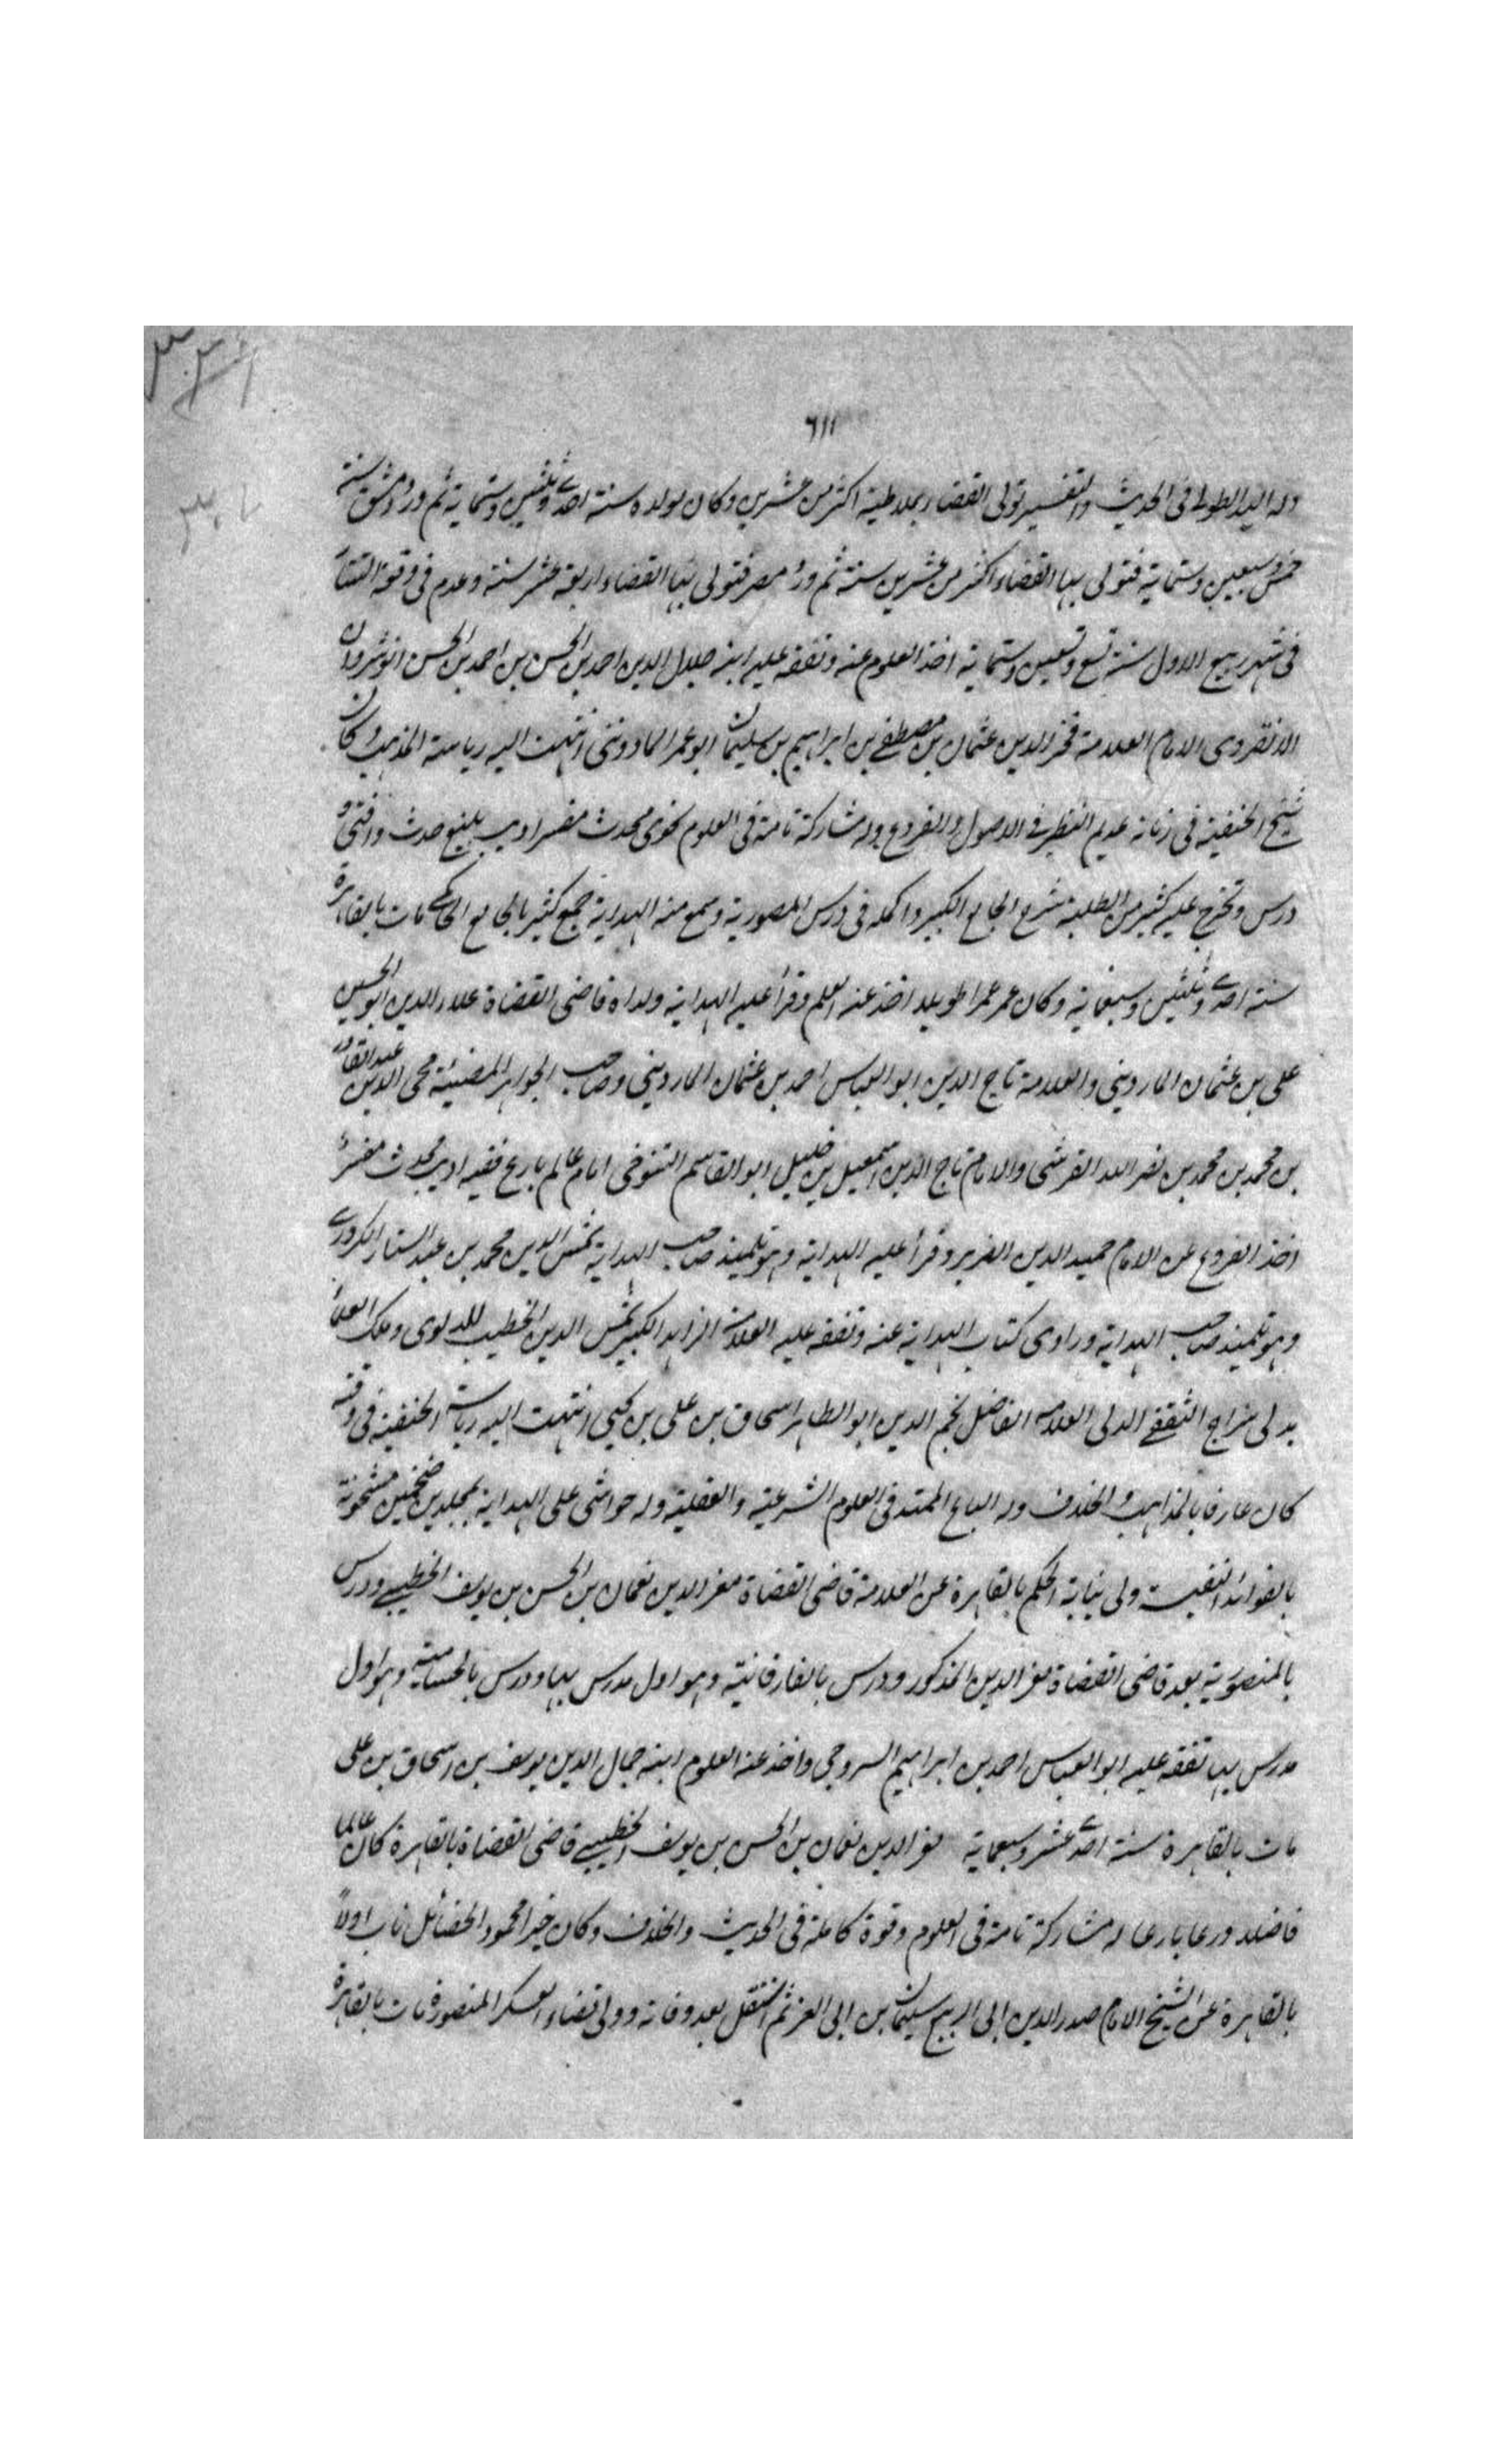 ٦١١
وله اليد الطولى فى الحديث والتفسير تولى القضاء بملاطية اكثر من عشرين وكان مولده سنة احدى وثلثين وستماية ثم ورد دمشق سنة
خمس وسبعين وستماية فتولى بها القضاء اكثر من عشرين سنة ثم ورد مصر فتولى بها القضاء اربعة عشر سنة وعدم فى وقعة التتار
فى شهر ربيع الاول سنة تسع وتسعين وستماية اخذ العلوم عنه وتفقه عليه ابنه جلال الدين احمد بن الحسن بن احمد بن الحسن انوشروان
الانقروى الامام العلامة فخر الدين عثمان بن مصطفى بن ابراهيم بن سليمان ابو عمر الماردينى انتهت اليه رياسة المذهب وكان
شيخ الحنفية فى زمانه عديم النظير فى الاصول والفروع وله مشاركة تامة فى العلوم نحوى محدث مفسر اديب بليغ حدث وافتى و
درس وتخرج عليه كثير من الطلبة شرح الجامع الكبير واكمله فى درس المنصورية وسمع منه الهداية جمع كثير بالجامع الحاكمى مات بالقاهرة
سنة احدى وثلثين وسبعماية وكان عمر عمرا طويلا اخذ عنه العلم وقرأ عليه الهداية ولداه قاضى القضاة علاء الدين ابو الحسين
على بن عثمان الماردينى والعلامة تاج الدين ابو العباس احمد بن عثمان الماردينى وصاحب الجواهر المضيئة محى الدين عبد القادر
بن محمد بن محمد بن نصر الله القرشى والامام تاج الدين اسمعيل بن خليل ابو القاسم التنوخى امام عالم بارع فقيه اديب محدث مفسر
اخذ الفروع عن الامام حميد الدين الضرير وقرأ عليه الهداية وهو تلميذ صاحب الهداية شمس الدين محمد بن عبد الستار الكردرى
وهو تلميذ صاحب الهداية وراوى كتاب الهداية عنه وتفقه عليه العلامة الزاهد الكبير شمس الدين الخطيب الدلوى وملك العلماء
بدلى سراج الثقفى الدلى العلامة الفاضل نجم الدين ابو الطاهر اسحاق بن على بن يحيى انتهت اليه رياسة الحنفية فى وقته
كان عارفا بالمذاهب والخلاف وله الباع الممتد فى العلوم الشرعية والعقلية وله حواشى على الهداية بمجلدين ضخمين مشحونة
بالفوائد النفيسة ولى نيابة الحكم بالقاهرة عن العلامة قاضى القضاة معز الدين نعمان بن الحسن بن يوسف الخطيبى ودرس
بالمنصورية بعد قاضى القضاة معز الدين المذكور ودرس بالفارقانية وهو اول مدرس بها ودرس بالحسامية وهو اول
مدرس بها تفقه عليه ابو العباس احمد بن ابراهيم السروجى واخذ عنه العلوم ابنه جمال الدين يوسف بن اسحاق بن على
مات بالقاهرة سنة احدى عشر وسبعماية معز الدين نعمان بن الحسن بن يوسف الخطيبى قاضى القضاة بالقاهرة كان عالما
فاضلا ورعا بارعا له مشاركة تامة فى العلوم وقوة كاملة فى الحديث والخلاف وكان خيرا محمود الخصائل ناب اولا
بالقاهرة عن الشيخ الامام صدر الدين ابى الربيع سليمان بن ابى العز ثم استقل بعد وفاته وولى قضاء العسكر المنصورة مات بالقاهرة